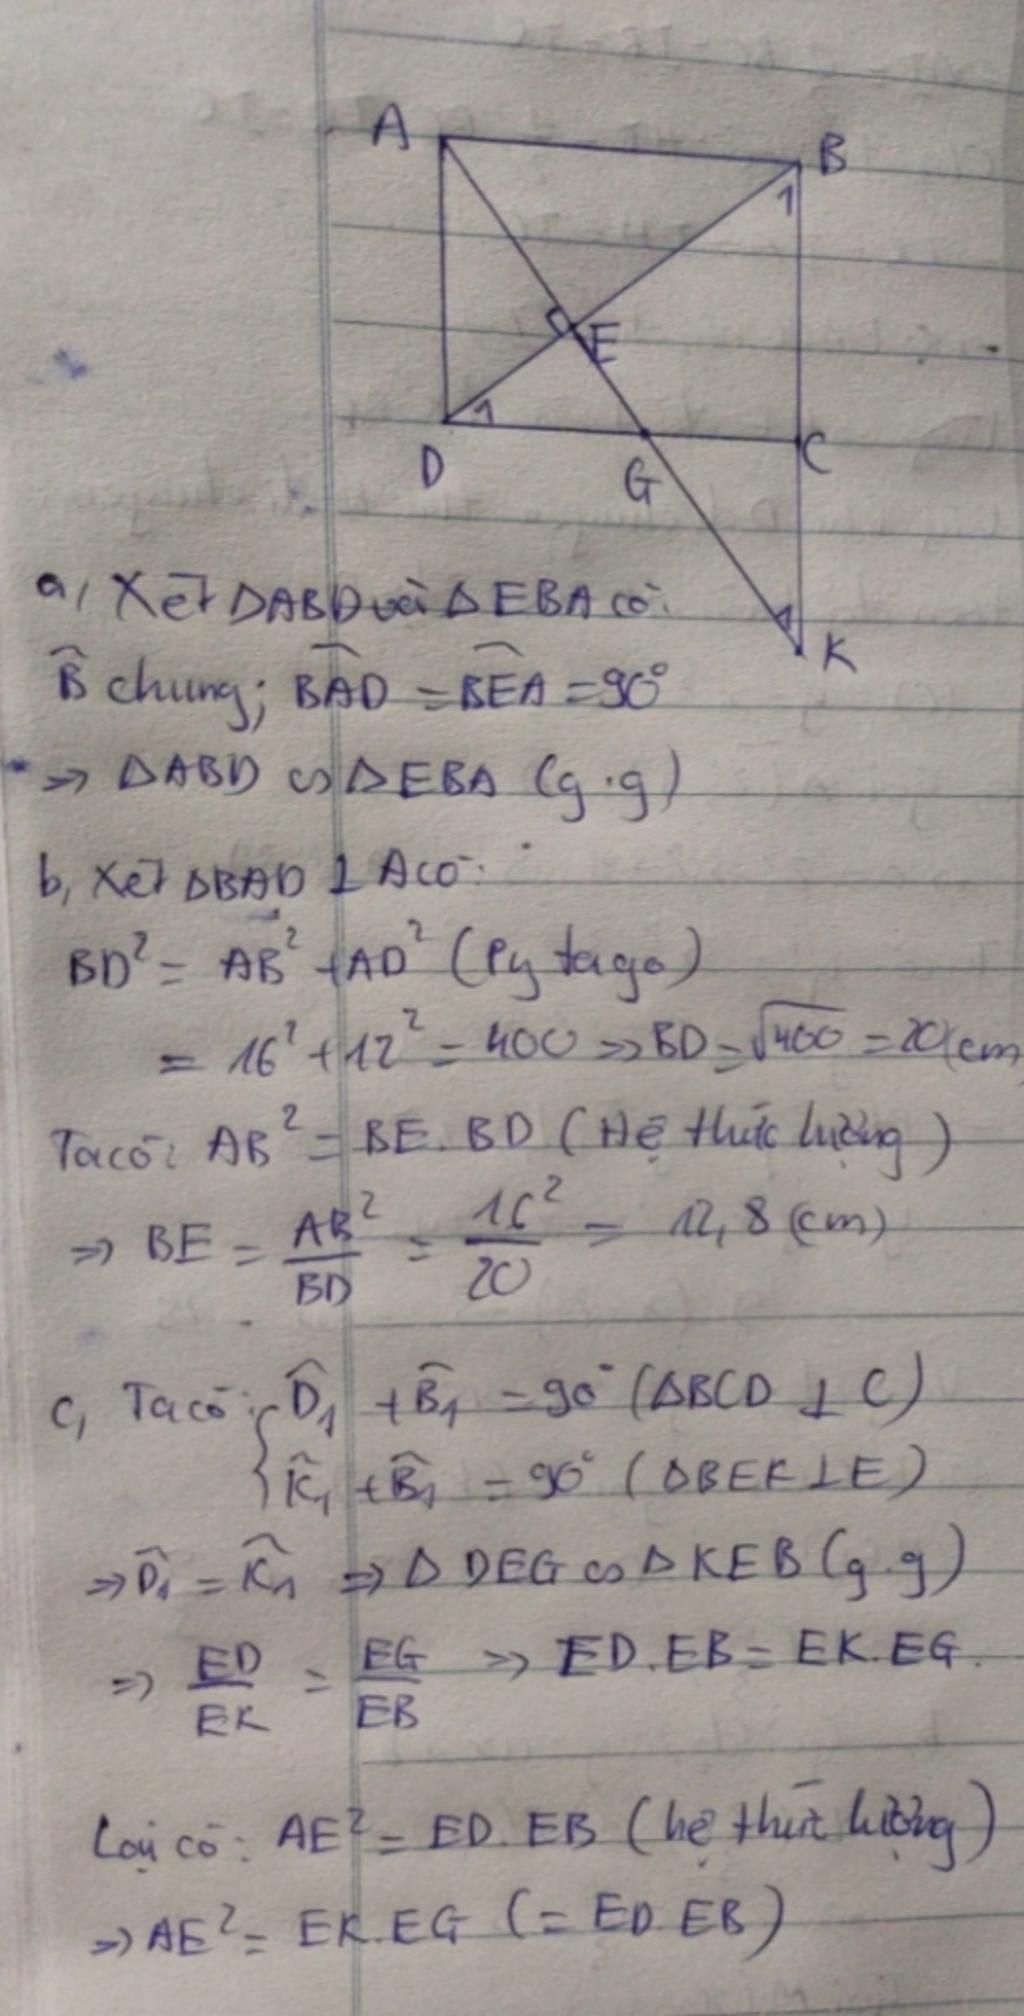 A
B
1
E
1
D
G
C
1
K
a, Xét ΔABD với ΔEBA có:
B̂ chung; BAD̂ = BEÂ = 90°
=> ΔABD ∽ ΔEBA (g.g)
b, Xét ΔBAD ⊥ A có:
BD² = AB² + AD² (Py tago)
= 16² + 12² = 400 => BD = √400 = 20(cm
Ta có: AB² = BE.BD (Hệ thức lượng)
=> BE = AB²/BD = 16²/20 = 12,8 (cm)
c, Ta có: { D̂₁ + B̂₁ = 90° (ΔBCD ⊥ C)
K̂₁ + B̂₁ = 90° (ΔBEK ⊥ E)
=> D̂₁ = K̂₁ => Δ DEG ∽ Δ KEB (g.g)
=> ED/EK = EG/EB => ED.EB = EK.EG.
Lại có: AE² = ED.EB (hệ thức lượng)
=> AE² = EK.EG (= ED.EB)